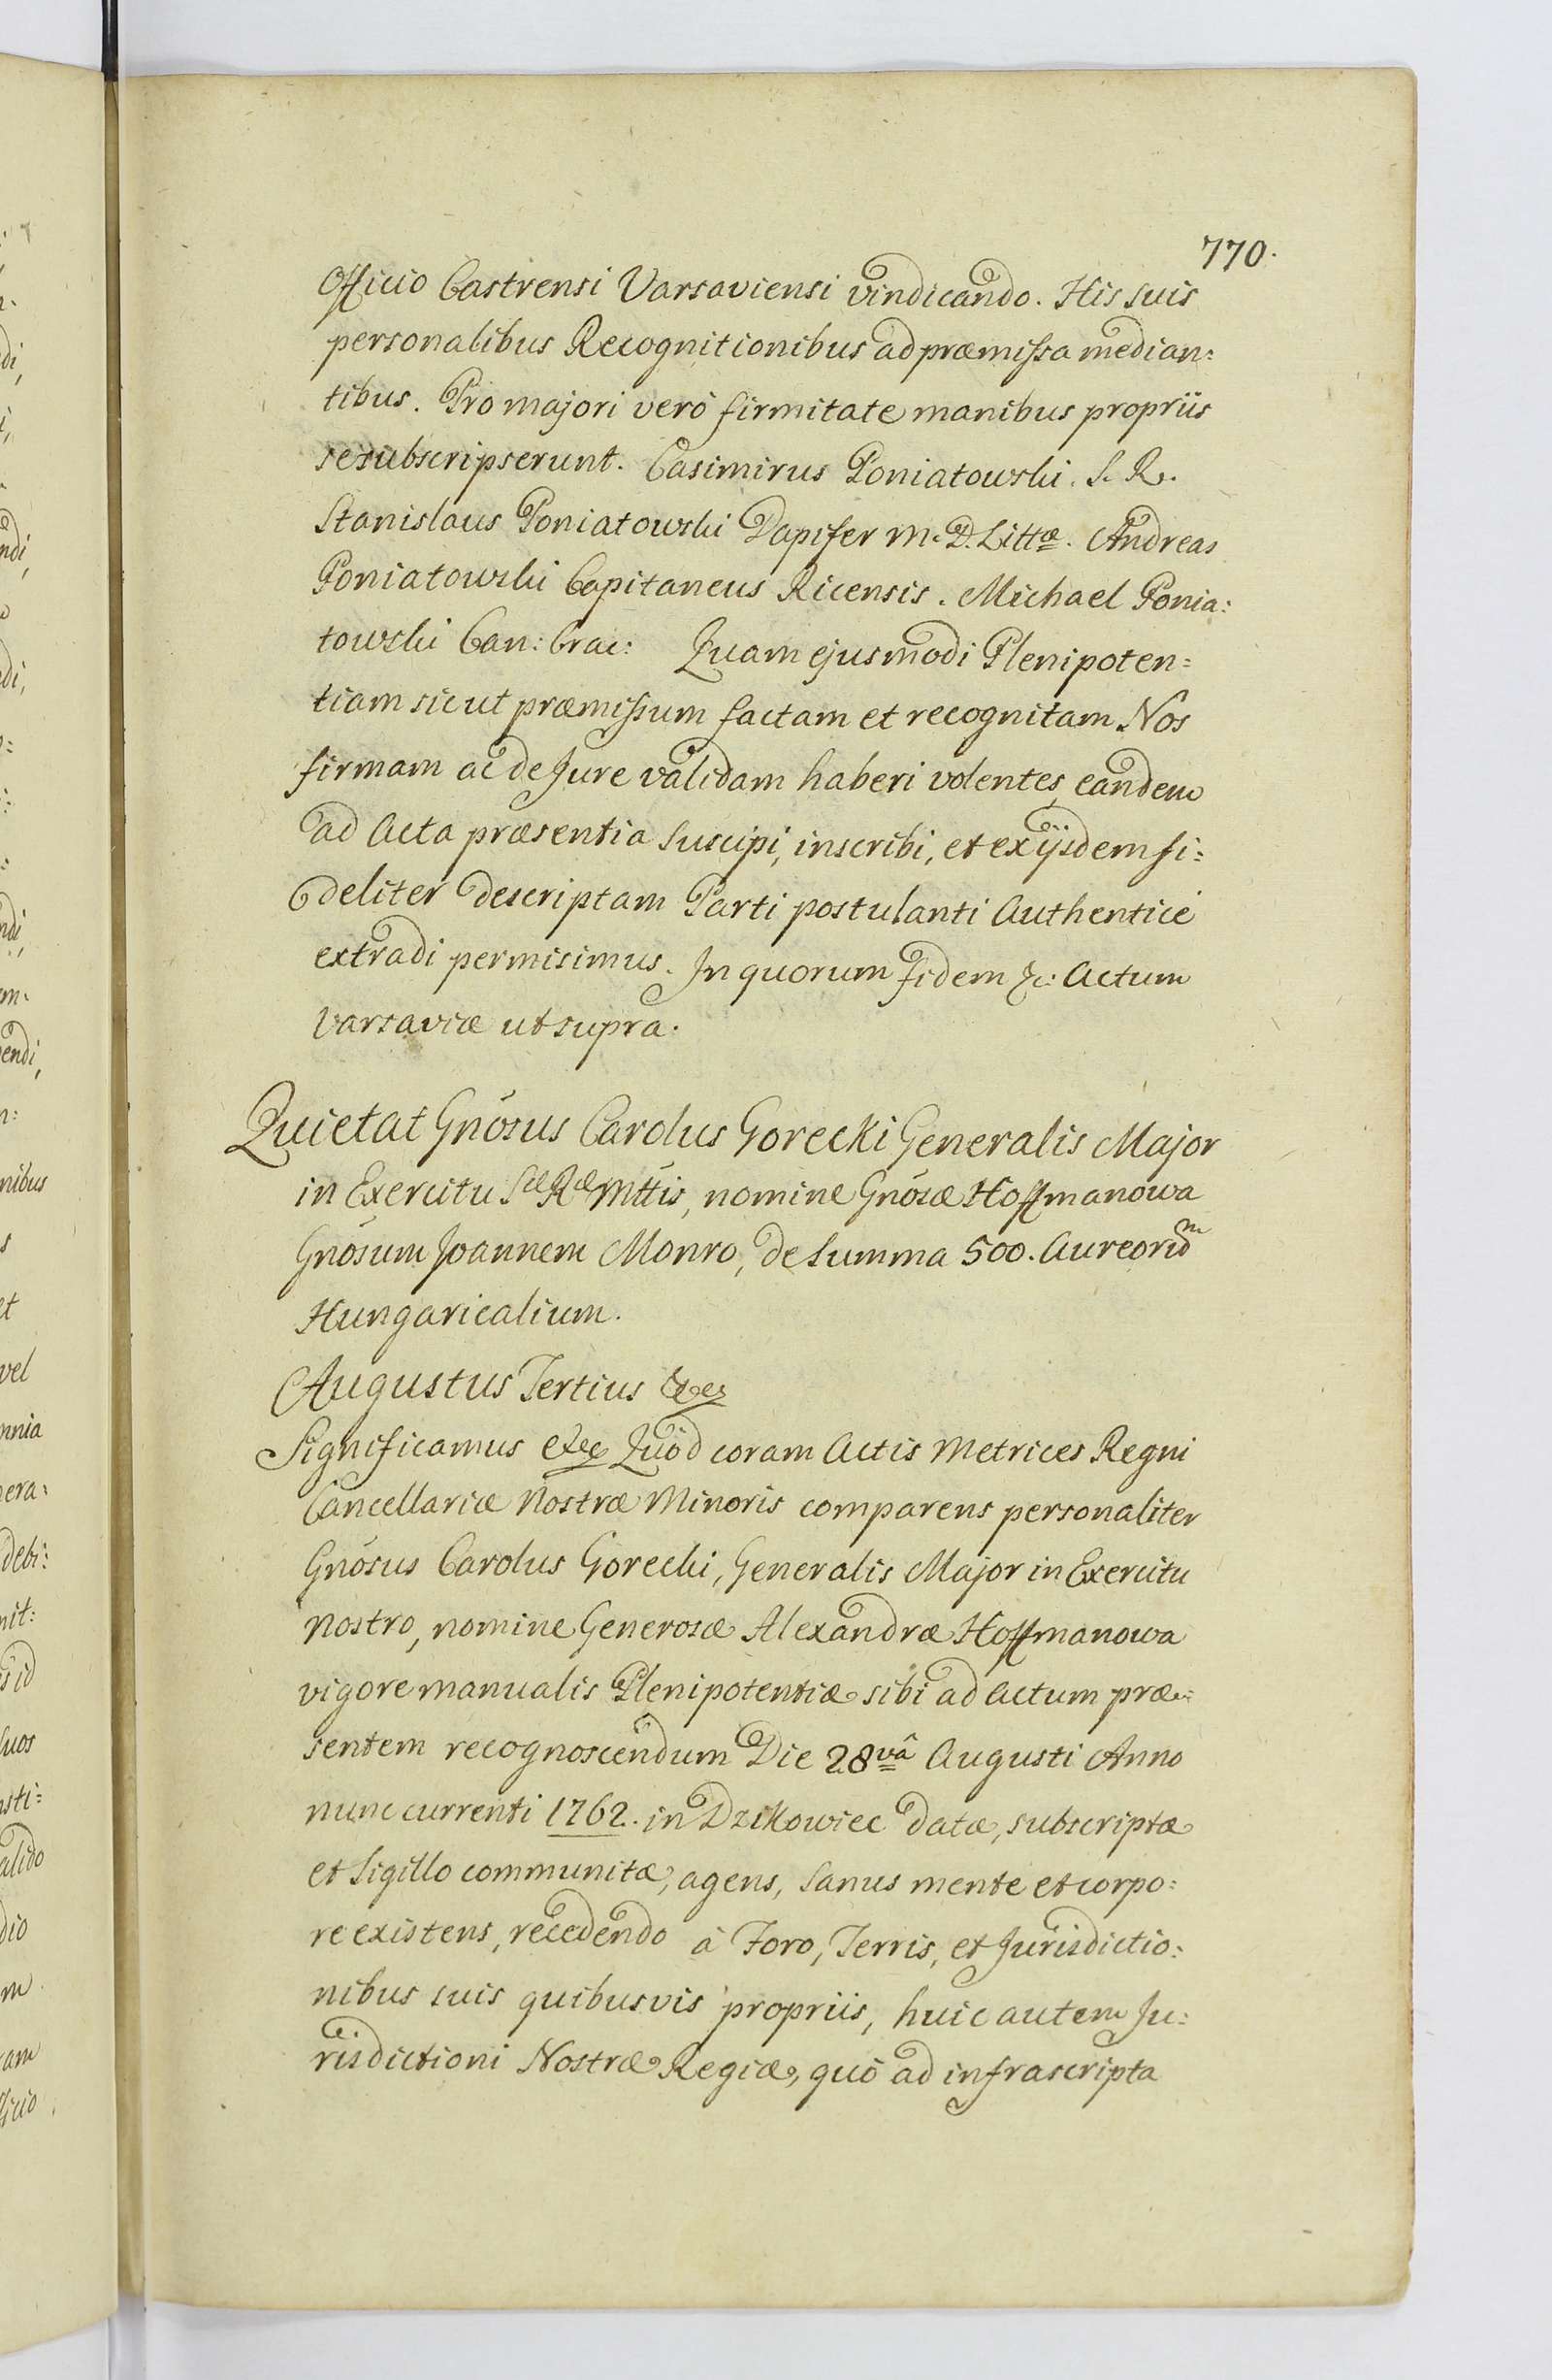 770.
Officio Castrensi Varsaviensi vindicando. His suis
personalibus Recognitionibus ad præmissa median:
tibus. Pro majori verò firmitate manibus propriis
se subscripserunt. Casimirus Poniatowski. S. R.
Stanislaus Poniatowski Dapifer M. D. Littæ. Andreas
Poniatowski Capitaneus Ricensis. Michael Ponia:
towski Can: Crac: Quam ejusmodi Plenipoten=
tiam sicut præmissum factam et recognitam Nos
firmam ac de Jure validam haberi volentes, eandem
ad Acta præsentia suscipi, inscribi, et ex ijsdem fi:
deliter descriptam Parti postulanti Authenticè
extradi permisimus. In quorum fidem &c: Actum
Varsaviæ ut supra.
Quietat Gnosus Carolus Gorecki Generalis Major
in Exercitu Sæ Ræ Mttis, nomine Gnosæ Hoffmanowa
Gnosum Joannem Monro, de summa 500. Aureorum
Hungaricalium.
Augustus Tertius &c
Significamus &c Quod coram Actis Metrices Regni
Cancellariæ Nostræ Minoris comparens personaliter
Gnosus Carolus Gorecki, Generalis Major in Exercitu
Nostro, nomine Generosæ Alexandræ Hoffmanowa
vigore manualis Plenipotentiæ sibi ad Actum præ=
sentem recognoscendum Die 28vâ Augusti Anno
nunc currenti 1762. in Dzikowiec datæ, subscriptæ
et sigillo communitæ, agens, sanus mente et corpo:
re existens, recedendo à Foro, Terris, et Jurisdictio:
nibus suis quibusvis propriis, huic autem Ju:
risdictioni Nostræ Regiæ, quò ad infrascripta